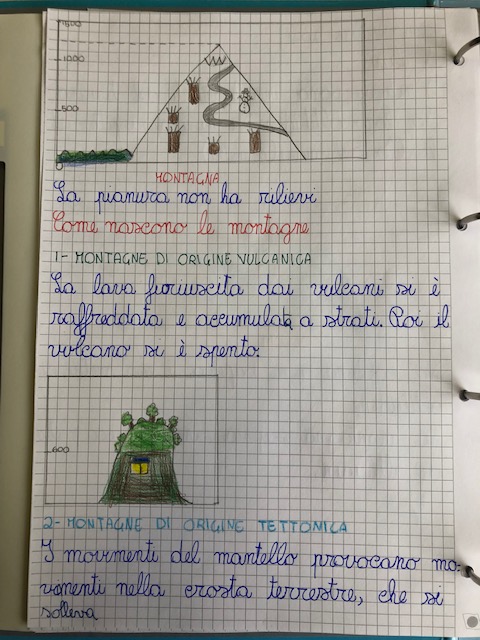 1500
1000
500
0
MONTAGNA
La pianura non ha rilievi
Come nascono le montagne
1- MONTAGNE DI ORIGINE VULCANICA
La lava fuoriuscita dai vulcani si è
raffreddata e accumulata a strati. Poi il
vulcano si è spento.
600
2- MONTAGNE DI ORIGINE TETTONICA
I movimenti del mantello provocano mo-
vimenti nella crosta terrestre, che si
solleva